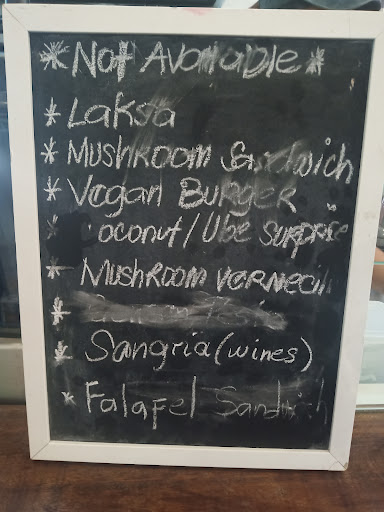 * Not Available *
* Laksa
* Mushroom Sandwich
* Vegan Burger
* Coconut/Ube Surprise
* Mushroom Vermecili
*
* Sangria (wines)
* Falafel Sandwich